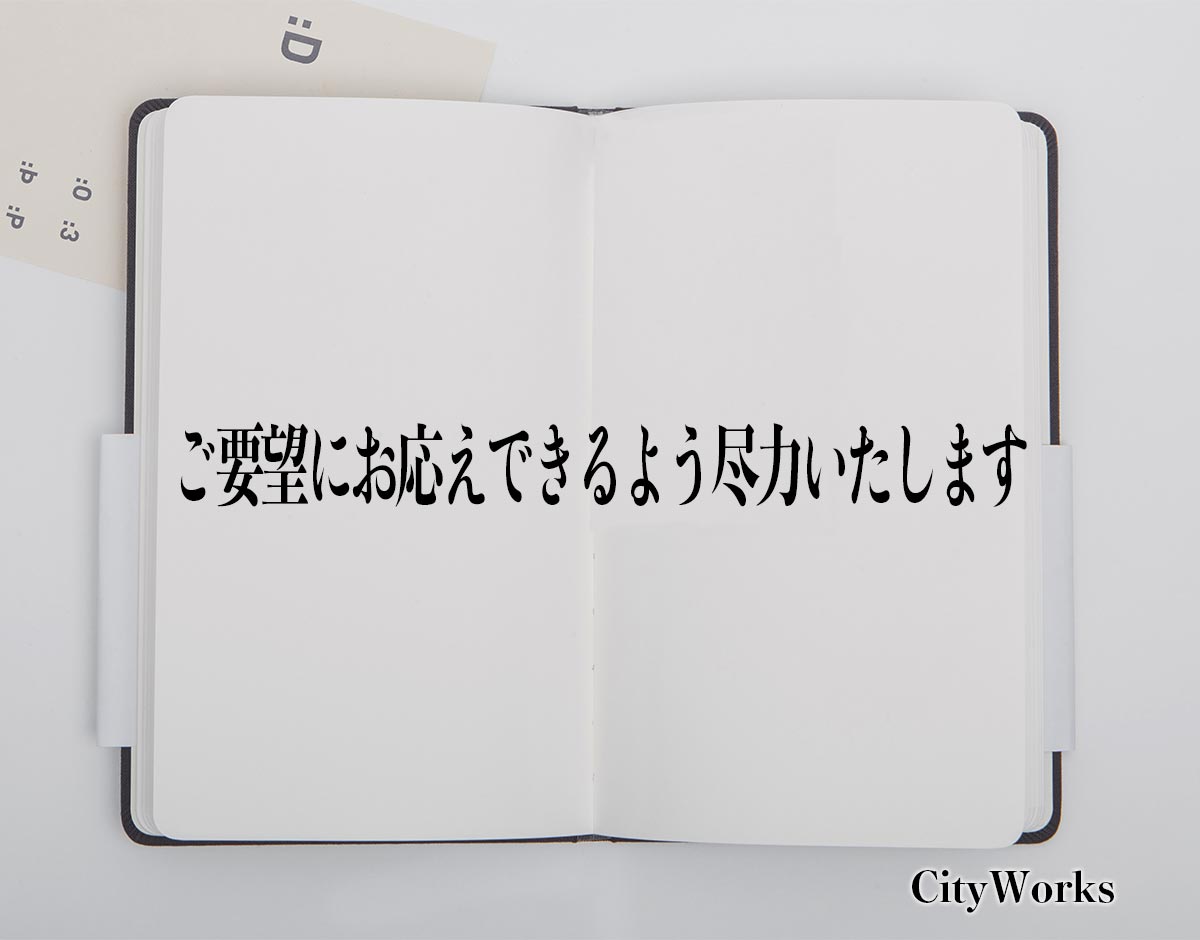 :D
:P :O
:P :3
ご要望にお応えできるよう尽力いたします
CityWorks